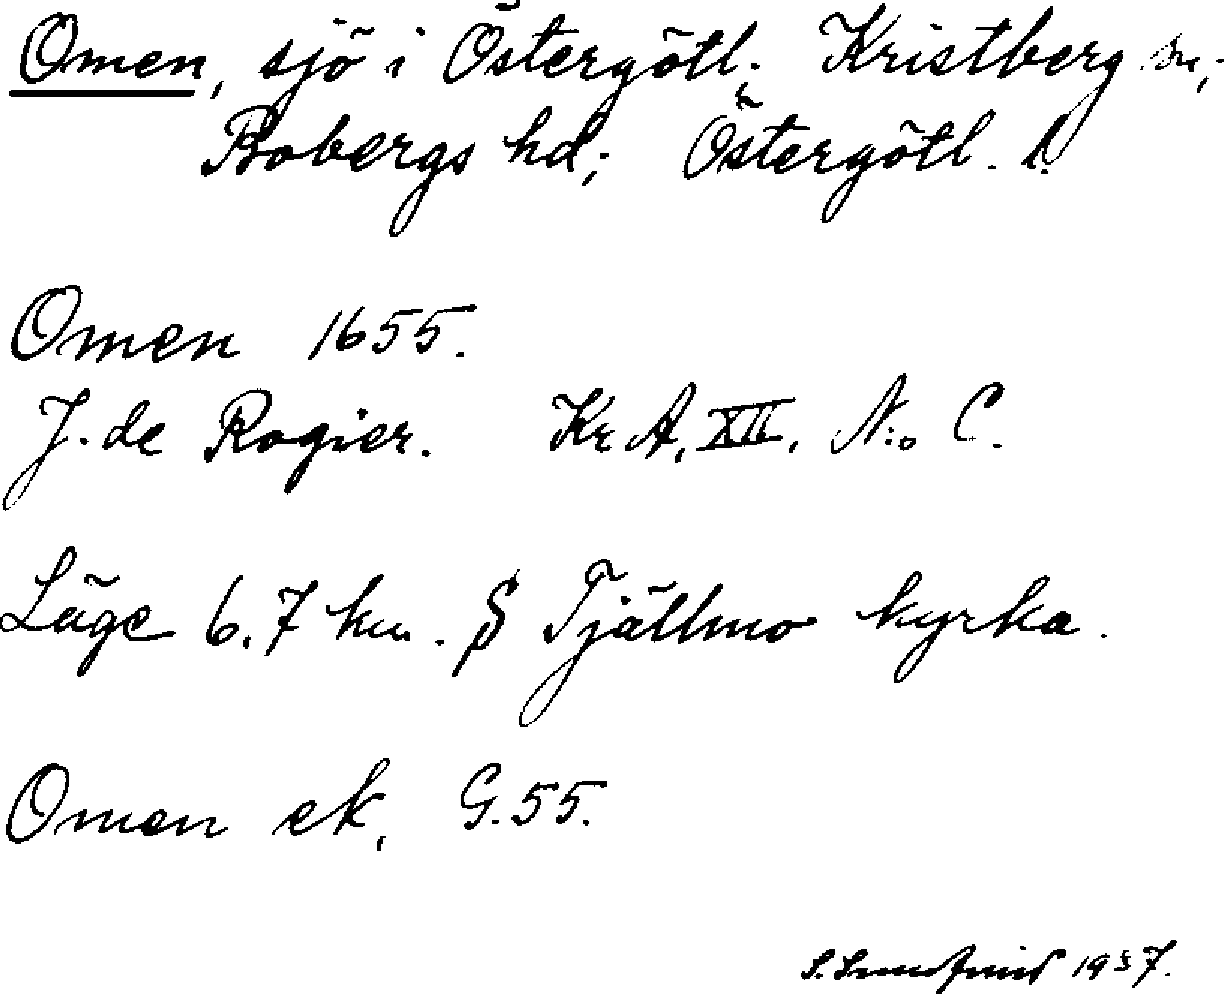 Omen, sjö i Östergötl.; Kristberg sn,;
Bobergs hd; Östergötl. l.
Omen 1655.
J. de Rogier. Kr A, XII, N:o C.
Läge 6,7 km. S Tjällmo kyrka.
Omen ek, G. 55.
S. 1937.